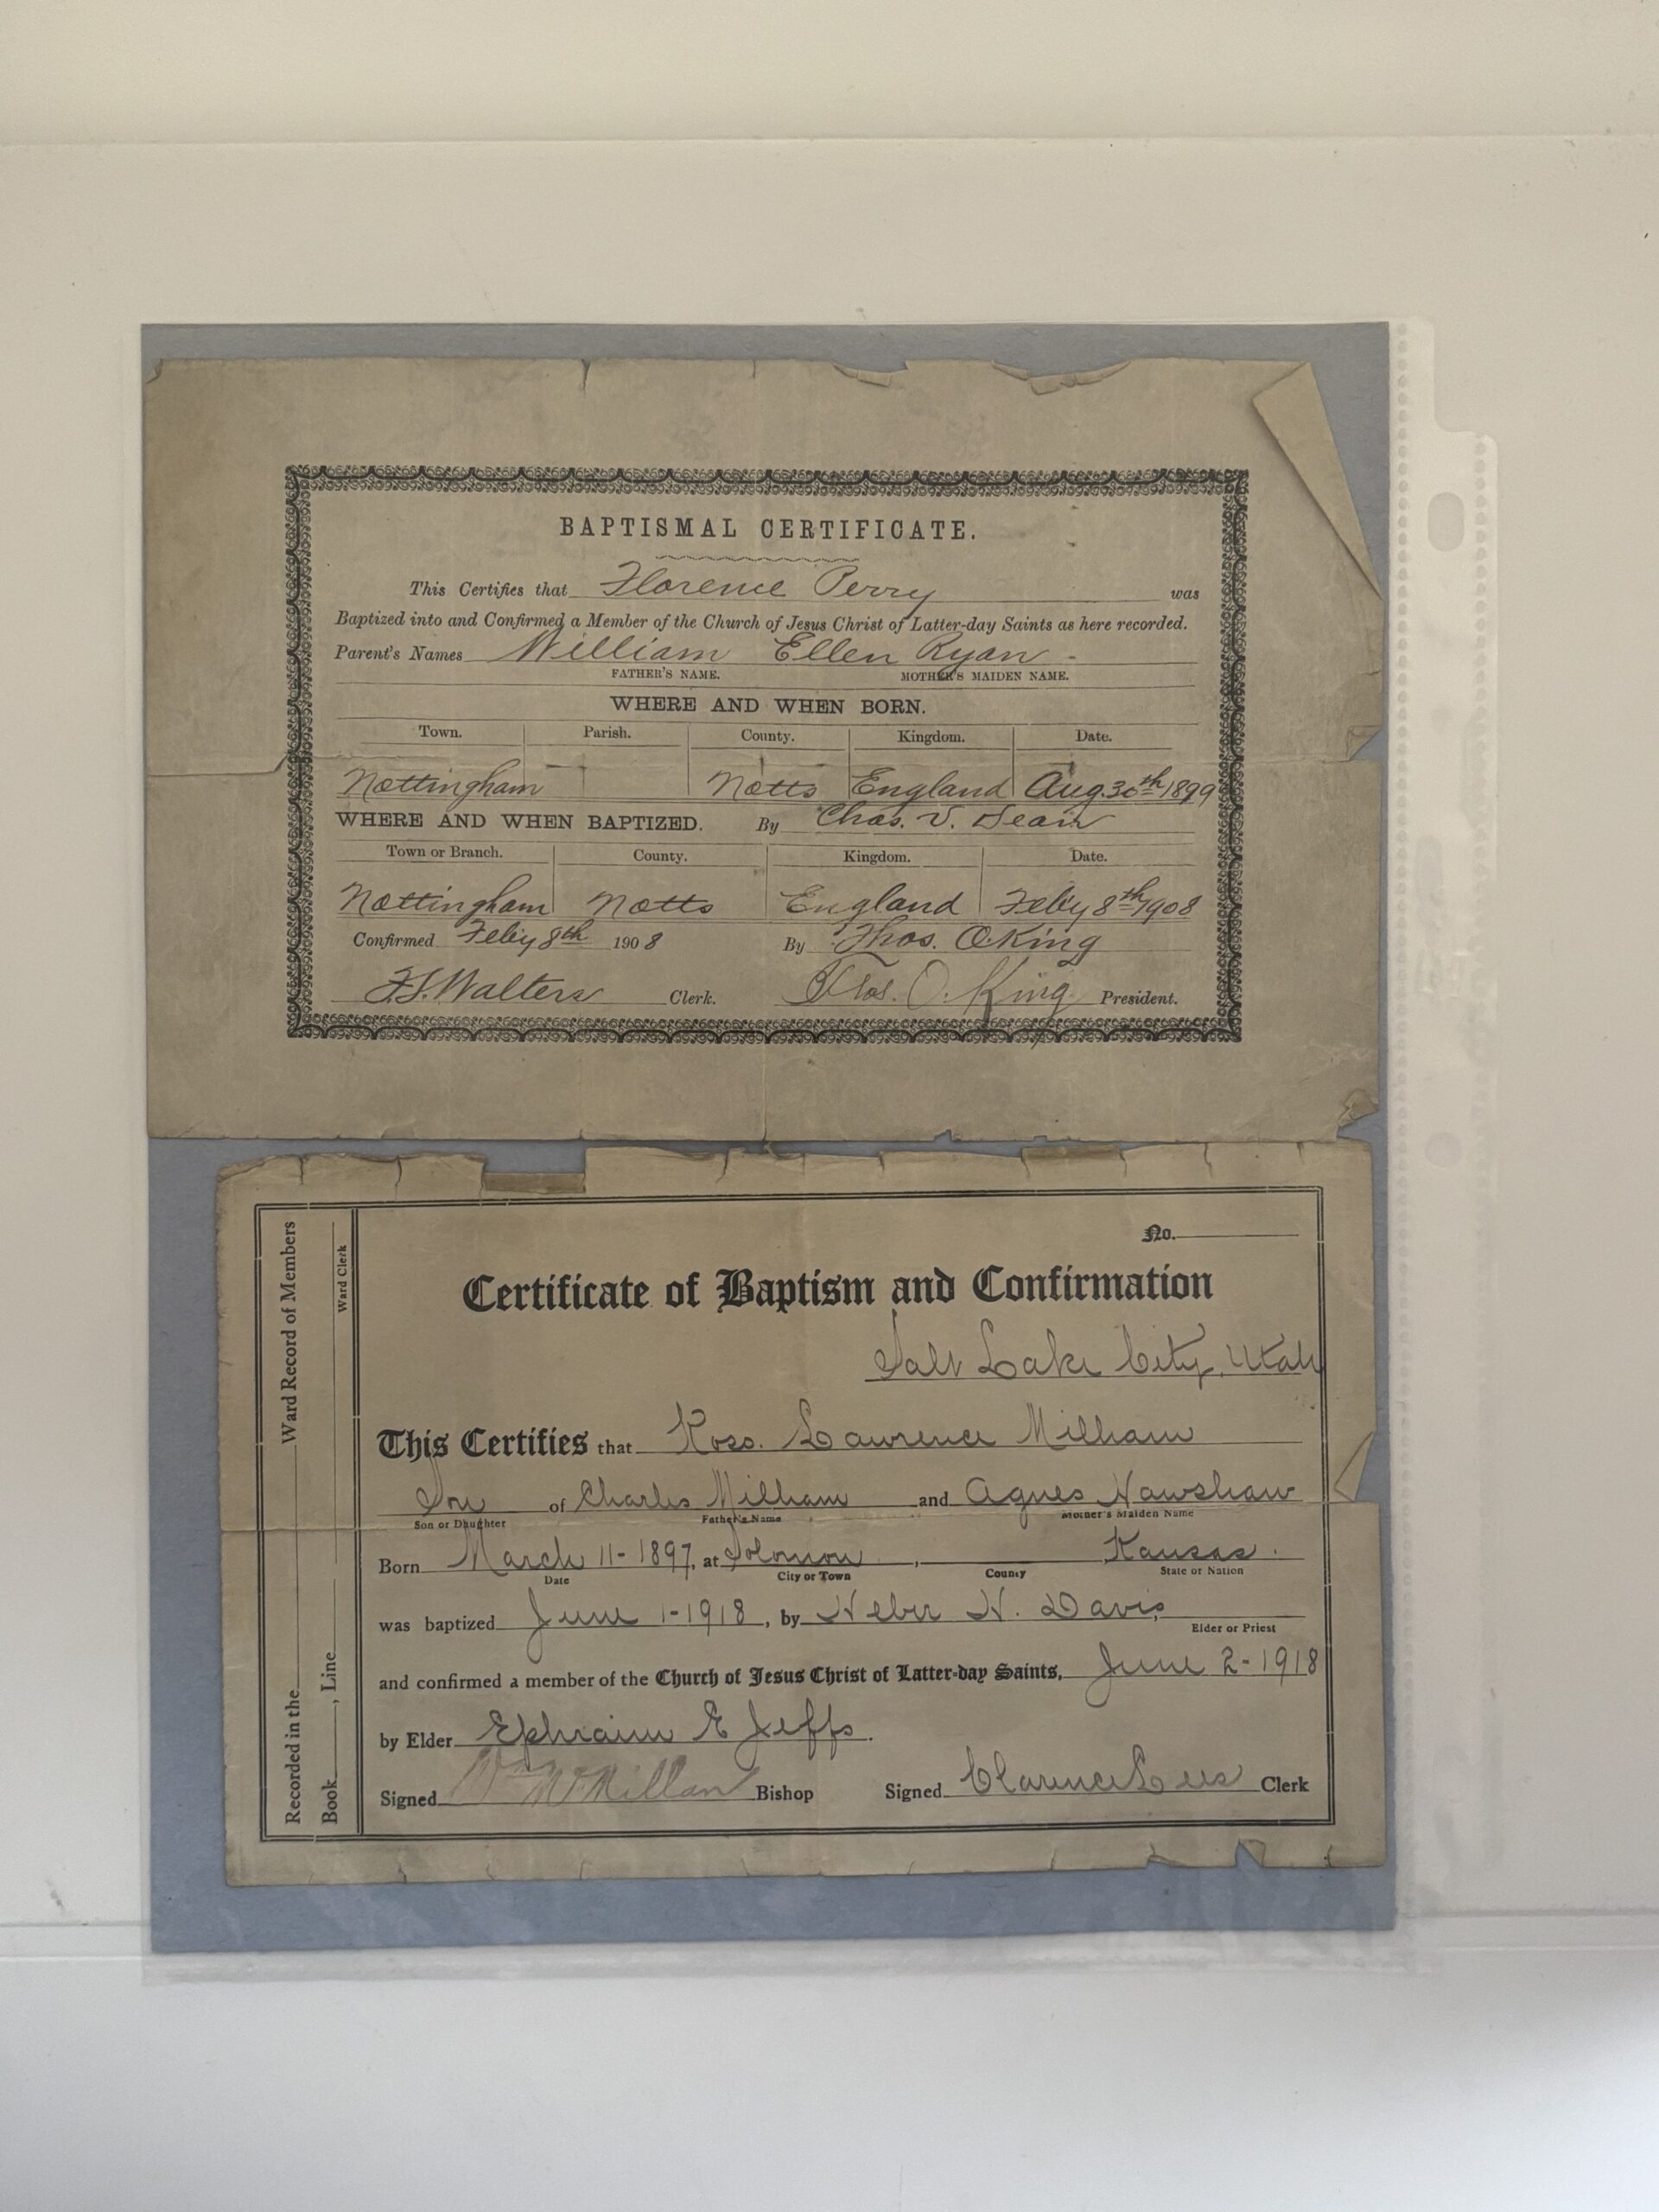 BAPTISMAL CERTIFICATE.
This Certifies that Florence Perry was
Baptized into and Confirmed a Member of the Church of Jesus Christ of Latter-day Saints as here recorded.
Parent's Names William Ellen Ryan
FATHER'S NAME. MOTHER'S MAIDEN NAME.
WHERE AND WHEN BORN.
Town. Parish. County. Kingdom. Date.
Nottingham — Notts England Aug. 30th 1899
WHERE AND WHEN BAPTIZED. By Chas. V. Dean
Town or Branch. County. Kingdom. Date.
Nottingham Notts England Feby 8th 1908
Confirmed Feby 8th 1908 By Thos. O. King
F.S. Walters Clerk. Thos. O. King President.
No.
Certificate of Baptism and Confirmation
Salt Lake City, Utah
This Certifies that Ross. Lawrence Milham
Son of Charles Milham and Agnes Hawshaw
Son or Daughter Father's Name Mother's Maiden Name
Born March 11-1897, at Solomon, Kansas.
Date City or Town County State or Nation
was baptized June 1-1918, by Heber H. Davis
Elder or Priest
and confirmed a member of the Church of Jesus Christ of Latter-day Saints, June 2-1918
by Elder Ephraim E Jeffs.
Signed Wm McMillan Bishop Signed Clarence Lees Clerk
Recorded in the Ward Record of Members
Book , Line Ward Clerk